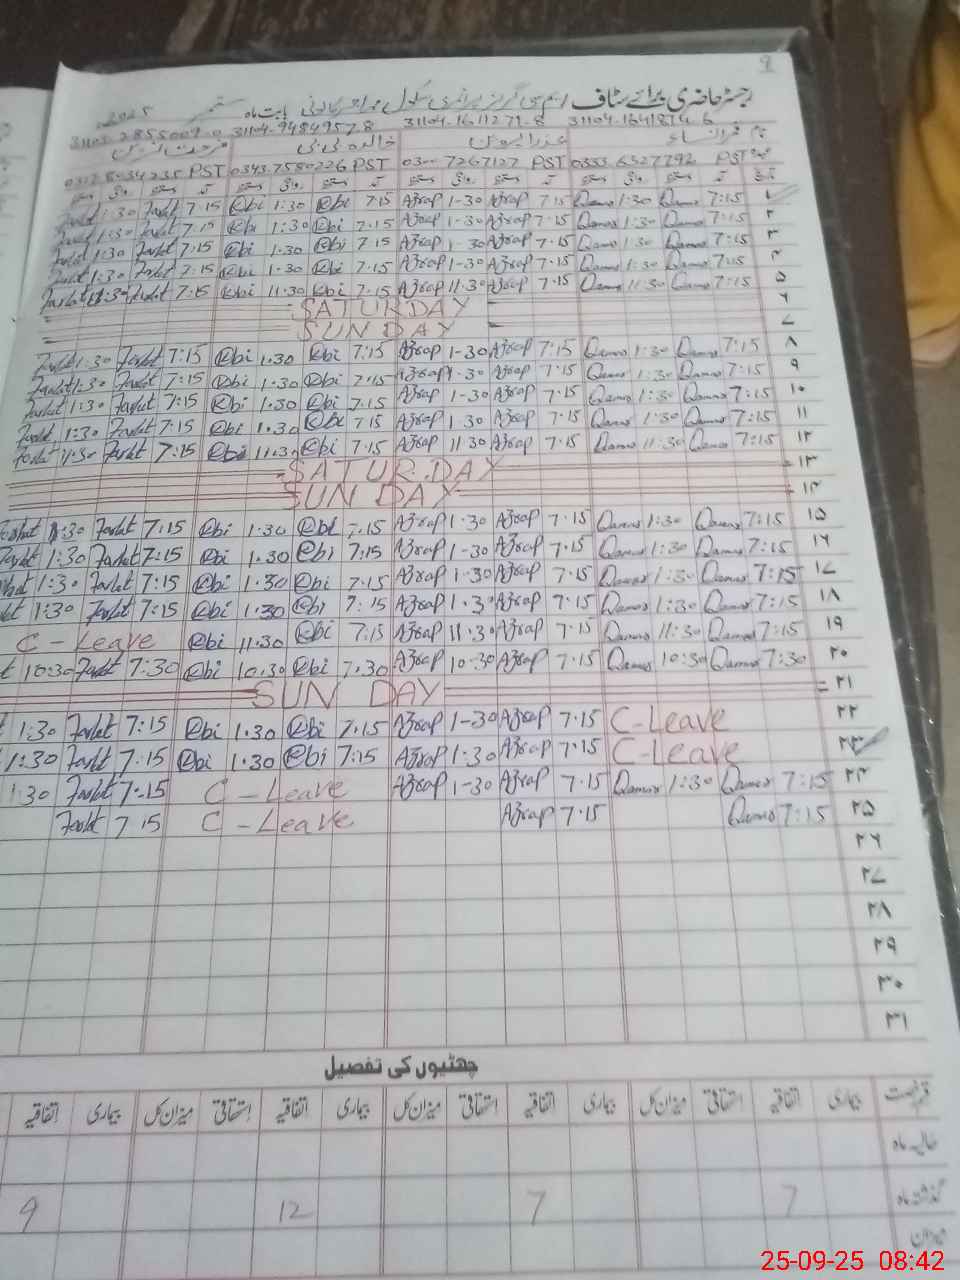 9
رجسٹر حاضری برائے سٹاف ایم سی گرلز پرائمری سکول بابت ماہ ستمبر 2025
31104-1641874-6 31104-1611271-8 31104-9484957-8 2855009-0
نام
0333.6327792 PST 0300 7267127 PST 0343.7580226 PST 34235 PST
۱ 7:15 Qamar 1:30 Qamar 7:15 Azrap 1-30 Azrap 7:15 @bi 1:30 @bi 7:15 Farhat 1:30 Farhat
۲ 7:15 Qamar 1:30 Qamar 7:15 Azrap 1-30 Azrap 7:15 @bi 1:30 @bi 7:15 Farhat 1:30 Farhat
۳ 7:15 Qamar 1:30 Qamar 7:15 Azrap 1-30 Azrap 7:15 @bi 1.30 @bi 7:15 Farhat 1:30 Farhat
۴ 7:15 Qamar 1:30 Qamar 7:15 Azrap 1-30 Azrap 7:15 @bi 1.30 @bi 7:15 Farhat 1:30 Farhat
۵ 7:15 Qamar 11:30 Qamar 7:15 Azrap 11:30 Azrap 7:15 @bi 11.30 @bi 7:15 Farhat 11:30 Farhat
۶ SATURDAY
۷ SUNDAY
۸ 7:15 Qamar 1:30 Qamar 7:15 Azrap 1-30 Azrap 7:15 @bi 1.30 @bi 7:15 Farhat 1:30 Farhat
۹ 7:15 Qamar 1:30 Qamar 7:15 Azrap 1.30 Azrap 7:15 @bi 1.30 @bi 7:15 Farhat 1:30 Farhat
۱۰ 7:15 Qamar 1:30 Qamar 7:15 Azrap 1-30 Azrap 7:15 @bi 1.30 @bi 7:15 Farhat 1:30 Farhat
۱۱ 7:15 Qamar 1:30 Qamar 7:15 Azrap 1.30 Azrap 7:15 @bi 1.30 @bi 7:15 Farhat 1:30 Farhat
۱۲ 7:15 Qamar 11:30 Qamar 7:15 Azrap 11.30 Azrap 7:15 @bi 11.30 @bi 7:15 Farhat 11:30 Farhat
۱۳ SATURDAY
۱۴ SUNDAY
۱۵ 7:15 Qamar 1:30 Qamar 7:15 Azrap 1.30 Azrap 7.15 @bi 1.30 @bi 7:15 Farhat 1:30 Farhat
۱۶ 7:15 Qamar 1:30 Qamar 7:15 Azrap 1-30 Azrap 7:15 @bi 1.30 @bi 7:15 Farhat 1:30 Farhat
۱۷ 7:15 Qamar 1:30 Qamar 7:15 Azrap 1.30 Azrap 7:15 @bi 1.30 @bi 7:15 Farhat 1:30
۱۸ 7:15 Qamar 1:30 Qamar 7:15 Azrap 1.30 Azrap 7:15 @bi 1.30 @bi 7:15 Farhat 1:30
۱۹ 7:15 Qamar 11:30 Qamar 7:15 Azrap 11.30 Azrap 7:15 @bi 11.30 @bi C-Leave
۲۰ 7:30 Qamar 10:30 Qamar 7:15 Azrap 10-30 Azrap 7.30 @bi 10.30 @bi 7:30 Farhat 10:30
۲۱ SUN DAY
۲۲ C-Leave 7.15 Azrap 1-30 Azrap 7.15 @bi 1.30 @bi 7:15 Farhat 1:30
۲۳ C-Leave 7.15 Azrap 1.30 Azrap 7:15 @bi 1.30 @bi 7:15 Farhat 1:30
۲۴ 7:15 Qamar 1:30 Qamar 7:15 Azrap 1-30 Azrap C-Leave 7:15 Farhat 1:30
۲۵ 7:15 Qamar 7.15 Azrap C-Leave 7.15 Farhat
۲۶
۲۷
۲۸
۲۹
۳۰
۳۱
چھٹیوں کی تفصیل
قسم رخصت بیماری اتفاقیہ استحقاقی میزان کل بیماری اتفاقیہ استحقاقی میزان کل بیماری اتفاقیہ استحقاقی میزان کل بیماری اتفاقیہ
حالیہ ماہ
گذشتہ ماہ 7 7 12 9
میزان
25-09-25 08:42